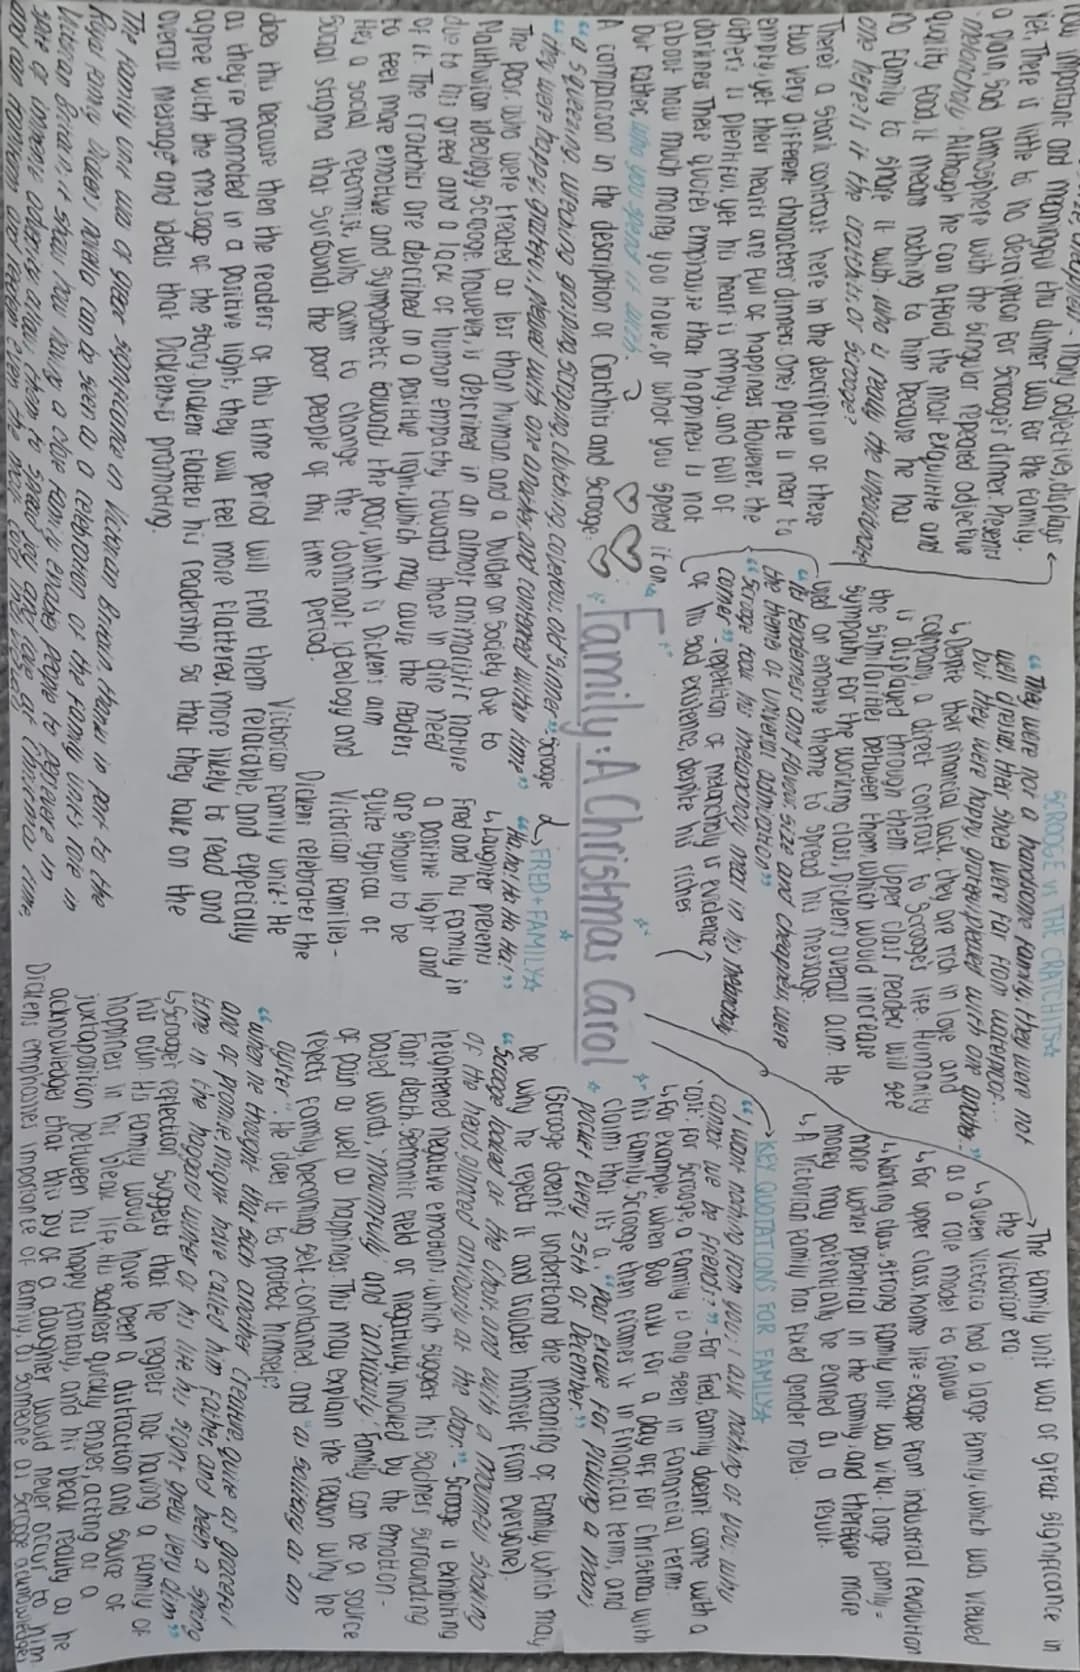 important and meaningful this dinner was for the family.
yet. There is little to no description for Scrooge's dinner. Presents
a plain, sad atmosphere with the singular repeated adjective
'melancholy'. Although he can afford the most exquisite and
quality food, it means nothing to him because he has
no family to share it with. who is really the unfortunate
one here: is it the cratchits, or scrooge?
There's a stark contrast here in the description of these
two very different characters' dinners. One's plate is near to
empty, yet their hearts are full of happiness. However, the
other's is plentiful, yet his heart is empty, and full of
darkness. These quotes emphasise that happiness is not
about how much money you have, or what you spend it on.
But rather, who you spend it with.
A comparison in the description of Cratchits and Scrooge:
"a squeezing, wrenching, grasping, scraping, clutching, covetous, old sinner" - Scrooge
"they were happy, grateful, pleased with one another, and contented with the time"
The poor, who were treated as less than human and a burden on society due to
Malthusian ideology. Scrooge, however, is described in an almost animalistic nature
due to his greed and a lack of human empathy towards those in dire need
of it. The Cratchits are described in a positive light, which may cause the readers
to feel more emotive and sympathetic towards the poor, which is Dickens' aim
He's a social reformist, who aims to change the dominant ideology and
social stigma that surrounds the poor people of this time period.
Family: A Christmas Carol
SCROOGE vs THE CRATCHITS
"They were not a handsome family; they were not
well dressed; their shoes were far from waterproof...
but they were happy, grateful, pleased with one another."
↳ Despite their financial lack, they are rich in love and
company, a direct contrast to Scrooge's life. Humanity
is displayed through them. Upper class readers will see
the similarities between them, which would increase
sympathy for the working class, Dickens' overall aim. He
used an emotive theme to spread his message.
"Its tenderness and flavour, size and cheapness, were
the theme of universal admiration"
"Scrooge took his melancholy meal in his melancholy
tavern" - repetition of melancholy is evidence
of his sad existence, despite his riches
→ The family unit was of great significance in
the Victorian era:
↳ Queen Victoria had a large family, which was viewed
as a role model to follow
↳ For upper class, home life = escape from industrial revolution
↳ Working class: strong family unit was vital. Large families =
more worker potential in the family, and therefore more
money may potentially be earned as a result.
↳ A Victorian family has fixed gender roles.
→ KEY QUOTATIONS FOR FAMILY
"I want nothing from you; I ask nothing of you; why
cannot we be friends?" - For Fred, family doesn't come with a
'cost'. For Scrooge, a family is only seen in financial terms.
↳ For example, when Bob asks for a day off for Christmas with
his family, Scrooge then frames it in financial terms, and
claims that it's a, "poor excuse for picking a man's
pocket every 25th of December."
(Scrooge doesn't understand the meaning of family, which may
be why he rejects it and isolates himself from everyone).
"Scrooge looked at the Ghost, and with a mournful shaking
of the head, glanced anxiously at the door." - Scrooge is exhibiting
heightened negative emotions, which suggest his sadness surrounding
Fan's death. Semantic field of negativity, invoked by the emotion-
based words, 'mournful', and 'anxiously'. Family can be a source
of pain as well as happiness. This may explain the reason why he
rejects family, becoming self-contained, and "as solitary as an
oyster". He does it to protect himself?
"when he thought that such another creature, quite as graceful
and of promise, might have called him father, and been a spring-
time in the haggard winter of his life, his sight grew very dim"
↳ Scrooge's reflection suggests that he regrets not having a family of
his own. His family would have been a distraction and source of
happiness in his bleak life. His sadness quickly ensues, acting as a
juxtaposition between his happy fantasy, and his bleak reality as he
acknowledges that this joy of a daughter would never occur to him
Dickens emphasises importance of family, as someone as Scrooge acknowledges
↳ FRED + FAMILY
"Ha, ha! Ha, ha, ha!"
↳ Laughter presents
Fred and his family in
a positive light and
are shown to be
quite typical of
Victorian families -
Dickens celebrates the
Victorian family unit! He
does this because then the readers of this time period will find them relatable, and especially
as they're promoted in a positive light, they will feel more flattered, more likely to read and
agree with the message of the story. Dickens flatters his readership so that they take on the
overall message and ideals that Dickens is promoting.
The family unit was of great significance in Victorian Britain, thanks in part to the
Royal Family. Dickens' novella can be seen as a celebration of the family unit's role in
Victorian Britain, it shows how having a close family enables people to persevere in
spite of immense adversity, allows them to spread joy and love at Christmas time
and can reform and redeem even the most